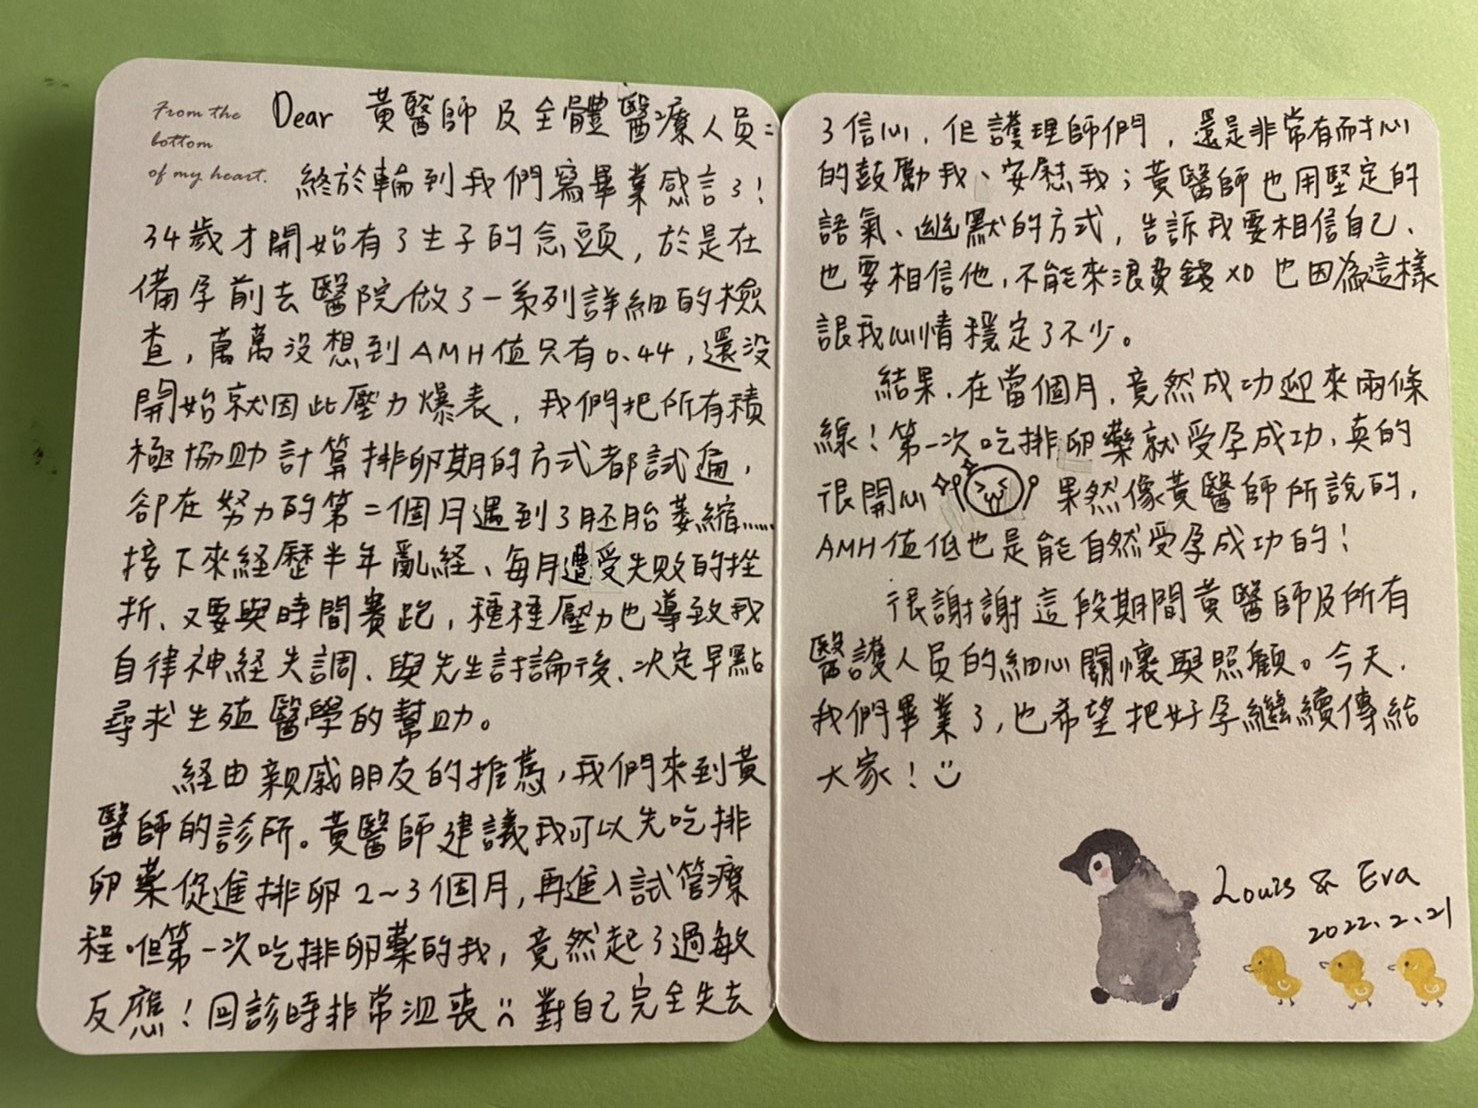 From the
bottom
of my heart.
Dear 黃醫師及全體醫療人員:
終於輪到我們寫畢業感言了!
34歲才開始有了生子的念頭,於是在
備孕前去醫院做了一系列詳細的檢
查,萬萬沒想到AMH值只有0.44,還沒
開始就因此壓力爆表,我們把所有積
極協助計算排卵期的方式都試遍,
卻在努力的第二個月遇到了胚胎萎縮......
接下來経歷半年亂経、每月遭受失敗的挫
折、又要與時間賽跑,種種壓力也導致我
自律神経失調、與先生討論後、決定早點
尋求生殖醫學的幫助。
経由親戚朋友的推薦,我們來到黃
醫師的診所。黃醫師建議我可以先吃排
卵藥促進排卵2~3個月,再進入試管療
程。但第一次吃排卵藥的我,竟然起了過敏
反應!回診時非常沮喪 對自己完全失去
了信心,但護理師們,還是非常有耐心
的鼓勵我、安慰我;黃醫師也用堅定的
語氣、幽默的方式,告訴我要相信自己、
也要相信他,不能來浪費錢XD 也因為這樣
讓我心情穩定了不少。
結果,在當個月,竟然成功迎來兩條
線!第一次吃排卵藥就受孕成功,真的
很開心 果然像黃醫師所說的,
AMH值低也是能自然受孕成功的!
很謝謝這段期間黃醫師及所有
醫護人員的細心關懷與照顧。今天,
我們畢業了,也希望把好孕繼續傳給
大家!
Louis & Eva
2022.2.21